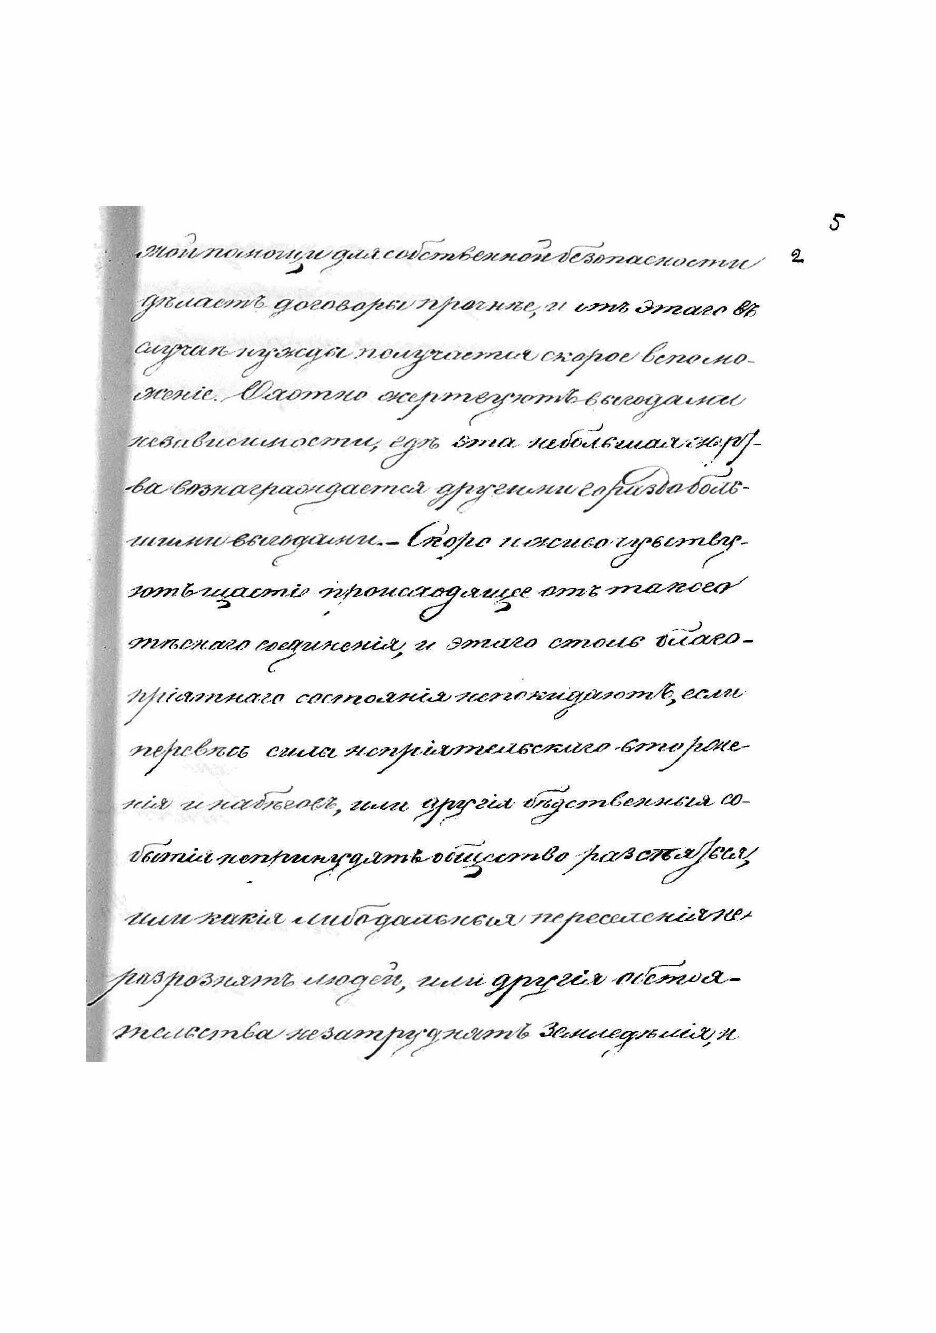 5
2
жной помощи для собственной безопасности
дѣлаетъ договоры прочнѣе, и отъ этаго въ
случаѣ нужды получается скорое вспомо-
женіе. Охотно жертвуютъ выгодами
независимости, гдѣ эта небольшая жерт-
ва вознаграждается другими гораздо боль-
шими выгодами. – Скоро и живо чувству-
ютъ щастіе происходящее отъ такого
тѣснаго соединенія, и этаго столь благо-
пріятнаго состоянія непокидаютъ, если
перевѣсъ силы непріятельскаго вторже-
нія и набѣговъ, или другія бѣдственныя со-
бытія непринудятъ общество разстаться,
или какія либо дальныя переселенія не
разрознятъ людей, или другія обстоя-
тельства незатруднятъ Земледѣлія, и